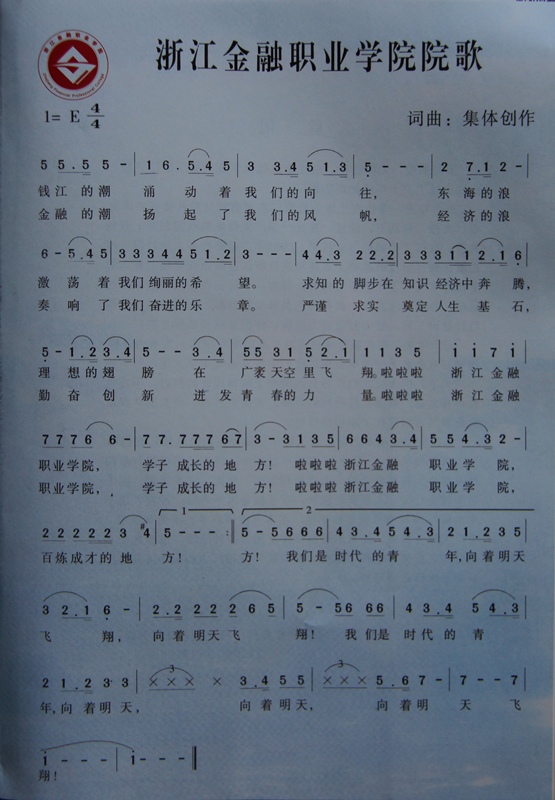 浙江金融职业学院院歌
1= E 4/4
词曲：集体创作
5 5 5.5 5 - | 1 6. 5.4 5 | 3 3.4 5 1.3 | 5 - - - | 2 7.1 2 -
钱江 的潮 涌 动 着 我 们 的 向 往， 东 海 的 浪
金融 的潮 扬 起 了 我 们 的 风 帆， 经 济 的 浪
6 - 5.4 5 | 3 3 3 3 4 4 5 1.2 | 3 - - - | 4 4.3 2 2.2 | 3 3 3 1 1 2.1 6
激 荡 着 我们 绚丽的希 望。 求知 的 脚步在 知识 经济中 奔 腾，
奏 响 了 我们 奋进的乐 章。 严谨 求实 奠定 人生 基 石，
5 - 1.2 3.4 | 5 - - 3.4 | 5 5 3 1 5 2.1 | 1 1 3 5 | i i 7 i
理 想 的 翅 膀 在 广袤 天空 里 飞 翔。啦啦啦 浙江金融
勤 奋 创 新 迸 发 青 春 的 力 量。啦啦啦 浙江金融
7 7 7 6 6 - | 7 7. 7 7 7 6 7 | 3 - 3 1 3 5 | 6 6 4 3.4 | 5 5 4.3 2 -
职业学院， 学子 成长的 地 方！ 啦啦啦 浙江金融 职业学 院，
职业学院， 学子 成长的 地 方！ 啦啦啦 浙江金融 职业学 院，
1 2
2 2 2 2 2 3 #4 | 5 - - - :| 5 - 5 6 6 6 | 4 3.4 5 4.3 | 2 1.2 3 5
百炼成才的 地 方！ 方！ 我们是 时代 的 青 年，向着 明天
3 2.1 6 - | 2.2 2 2 2 6 5 | 5 - 5 6 6 6 | 4 3.4 5 4.3
飞 翔， 向着 明天 飞 翔！ 我 们是 时代 的 青
3
2 1.2 3 3 | × × × × | 3.4 5 5 | 5.6 7 - | 7 - - 7
年，向着 明 天， 向着 明 天， 向着 明 天 飞
i - - - | i - - - ‖
翔！